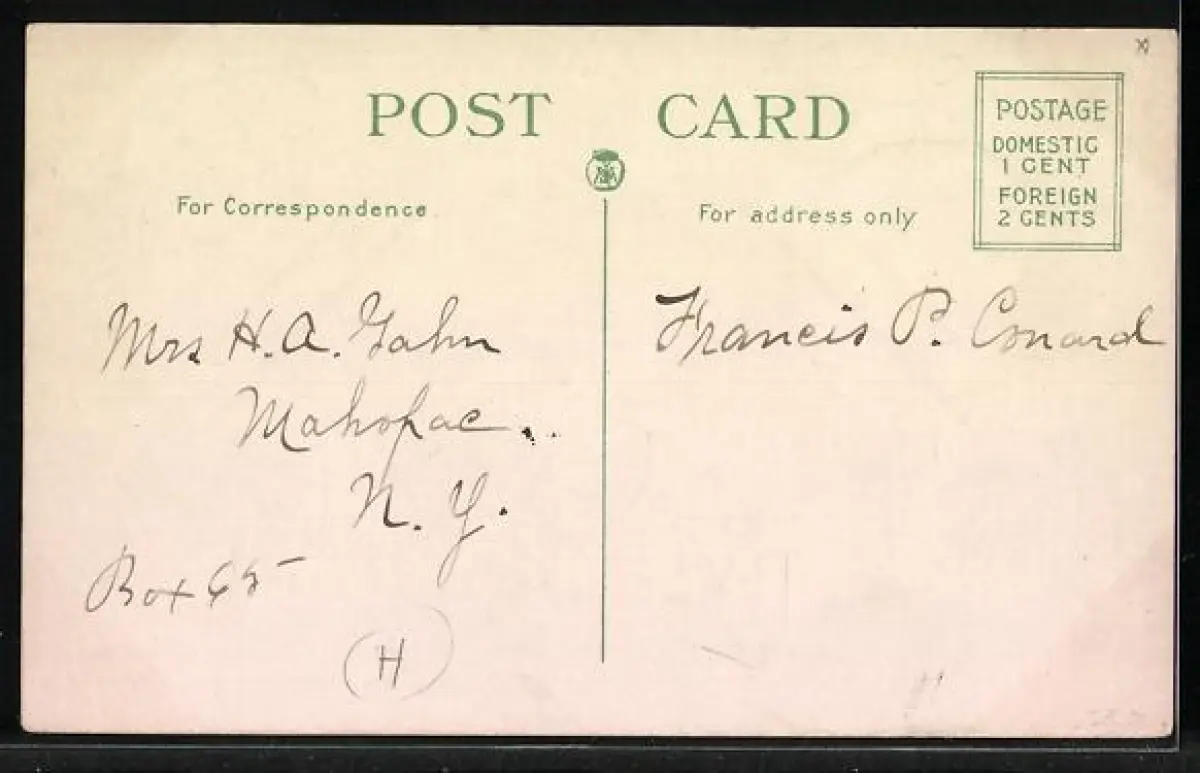 POST CARD
For Correspondence
For address only
POSTAGE
DOMESTIC
1 CENT
FOREIGN
2 CENTS
Mrs H. A. Gahn
Mahopac..
N. Y.
Box 65
(H)
Francis P. Conard
H